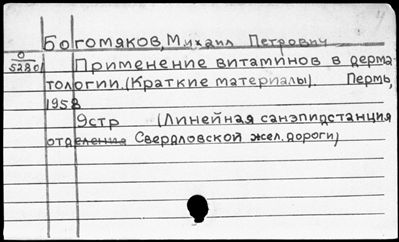 Богомяков, Михаил Петрович
0
5280
Применение витаминов в дерма
тологии. (Краткие материалы). Пермь,
1958
9стр (Линейная санэпидстанция
отделения Свердловской жел. дороги)